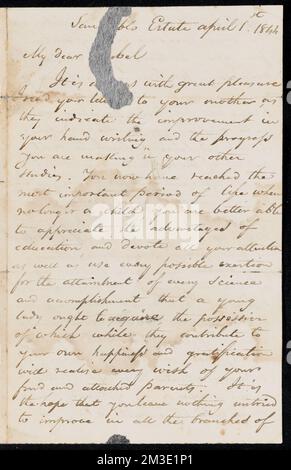 San Pablo Estate April 1st 1844
My dear Isabel
It is always with great pleasure
I read your letters to your mother as
they indicate the improvement in
your hand writing and the progress
you are making in your other
studies. You now have reached the
most important period of life when
no longer a child you are better able
to appreciate the advantages of
education and devote all your attention
as well as use every possible exertion
for the attainment of every science
and accomplishment that a young
lady ought to acquire the possession
of which while they contribute to
your own happiness and gratification
will realise every wish of your
fond and attached parents. It is
the hope that you leave nothing untried
to improve in all the branches of
alamy
Image ID: 2M3E1P1
www.alamy.com